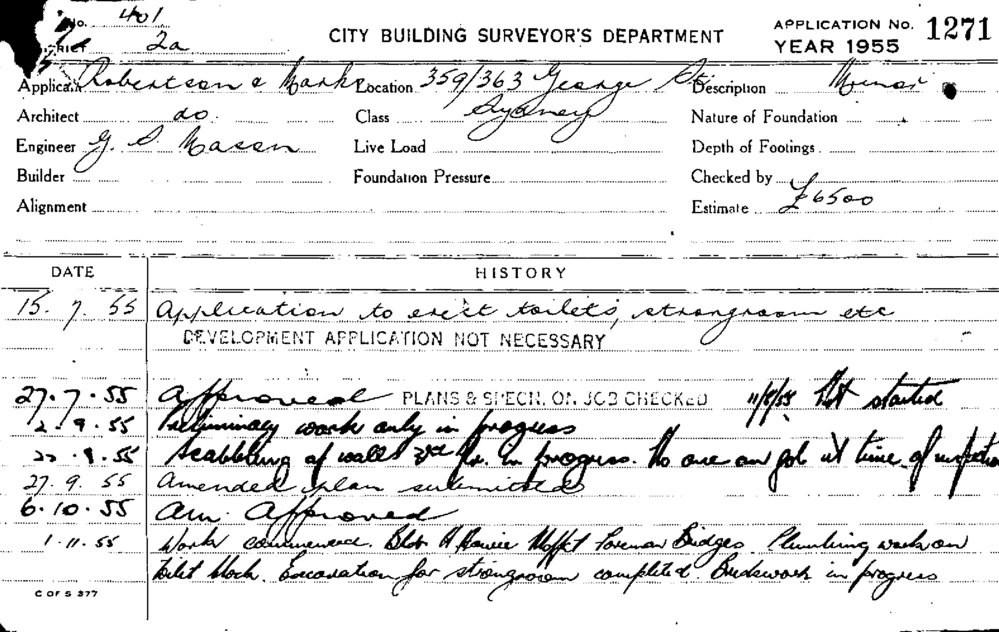 No. 401
2a
CITY BUILDING SURVEYOR'S DEPARTMENT
APPLICATION No. 1271
YEAR 1955
Applicant Robertson & Marks Location 359/363 George St Description Minor
Architect do. Class Sydney Nature of Foundation
Engineer G. S. Mason Live Load Depth of Footings
Builder Foundation Pressure Checked by
Alignment Estimate £6500
DATE HISTORY
15. 7. 55 Application to erect toilets, strongroom etc
DEVELOPMENT APPLICATION NOT NECESSARY
27.7.55 Approved PLANS & SPECN. ON JOB CHECKED 11/8/55 Not started
2.9.55 Preliminary work only in progress
Scabbling of walls 3rd flr. in progress. No one on job at time of inspection
27. 9. 55 Amended plan submitted
6.10.55 Am. Approved
1.11.55 Work commenced. Foreman Bridges. Plumbing work on
toilet block. Excavation for strongroom completed. Brickwork in progress
C OF S 377